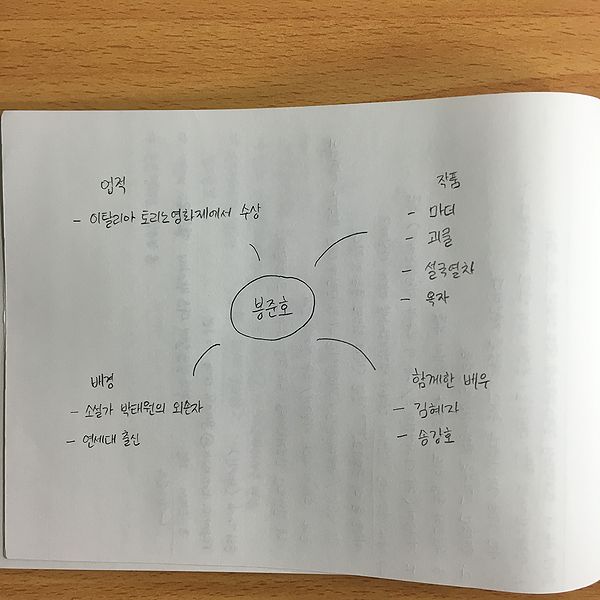 업적
- 이탈리아 토리노영화제에서 수상
작품
- 마더
- 괴물
- 설국열차
- 옥자
봉준호
배경
- 소설가 박태원의 외손자
- 연세대 출신
함께한 배우
- 김혜자
- 송강호